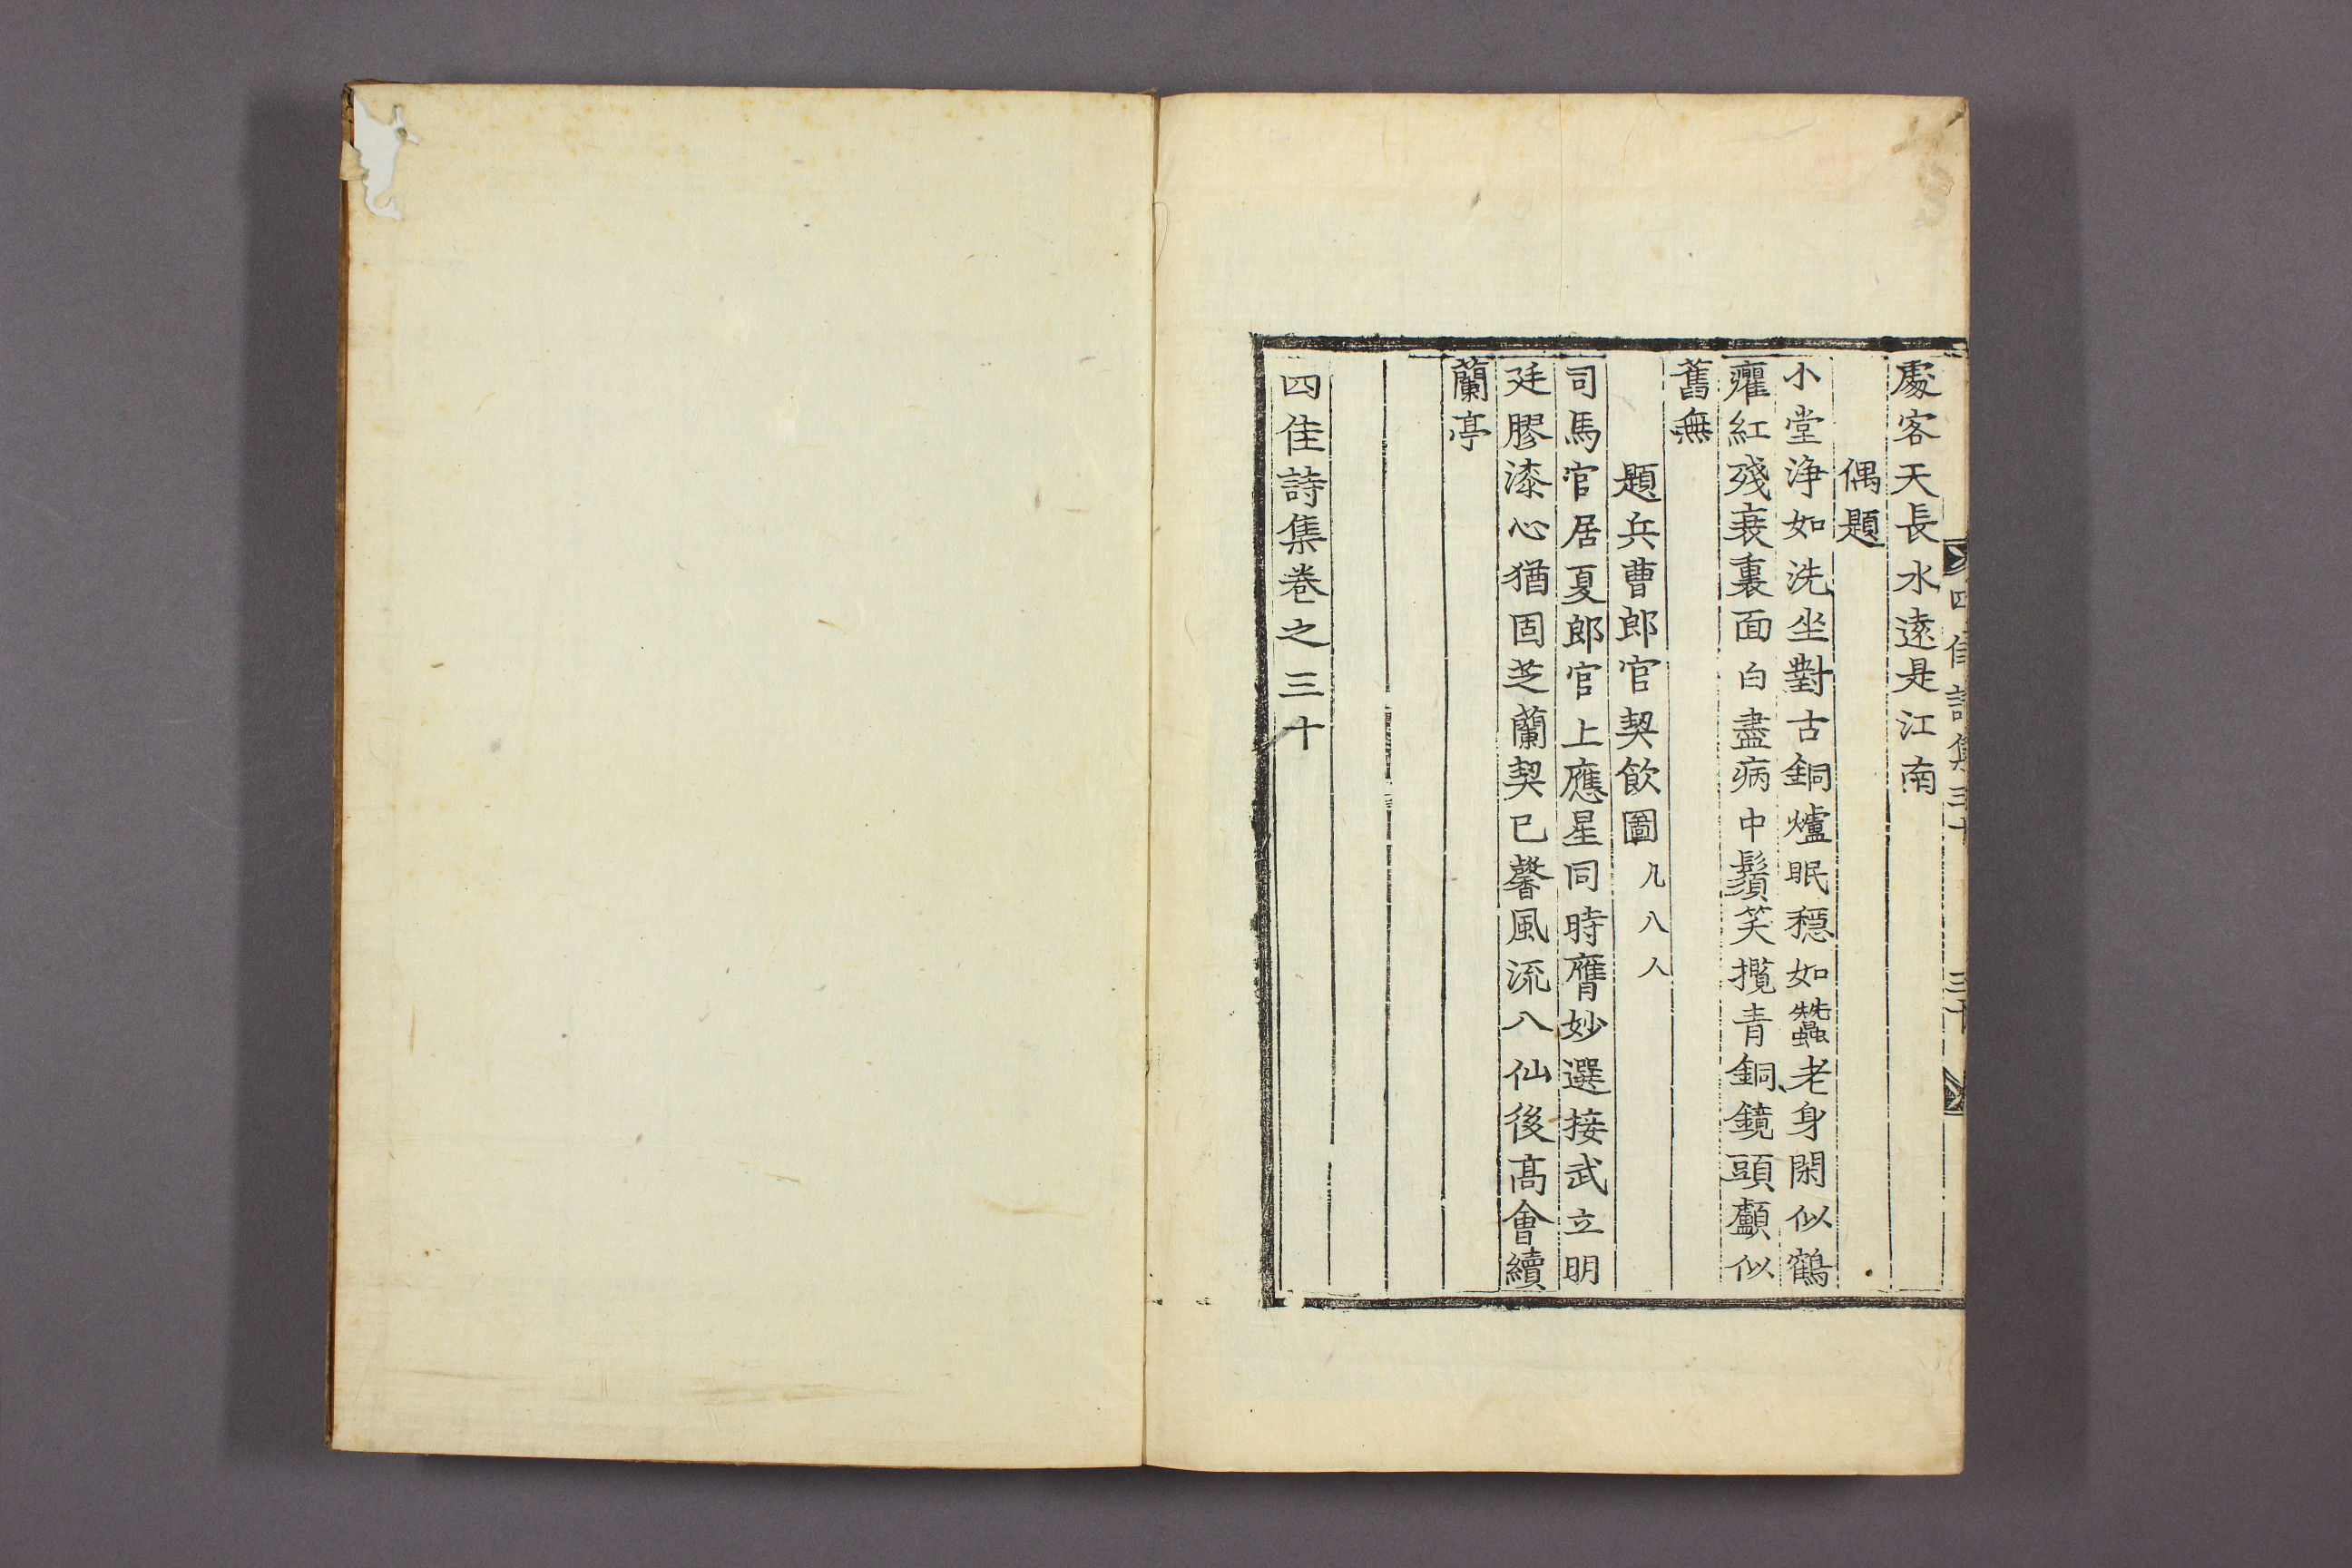 四佳詩集三十
處客天長水遠是江南
偶題
小堂淨如洗坐對古銅爐眠穩如蠶老身閑似鶴
癯紅殘衰裏面白盡病中鬚笑攬青銅鏡頭顱似
舊無
題兵曹郎官契飲圖凡八人
司馬官居夏郎官上應星同時膺妙選接武立明
廷膠漆心猶固芝蘭契已馨風流八仙後高會續
蘭亭
四佳詩集卷之三十